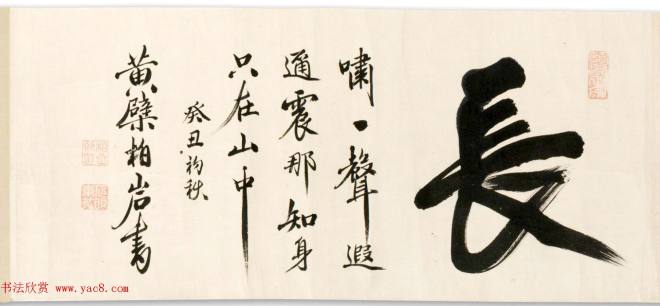 長
嘯一聲遐
通震那知身
只在山中
癸丑初秋
黄檗柏岩書
书法欣赏 www.yac8.com